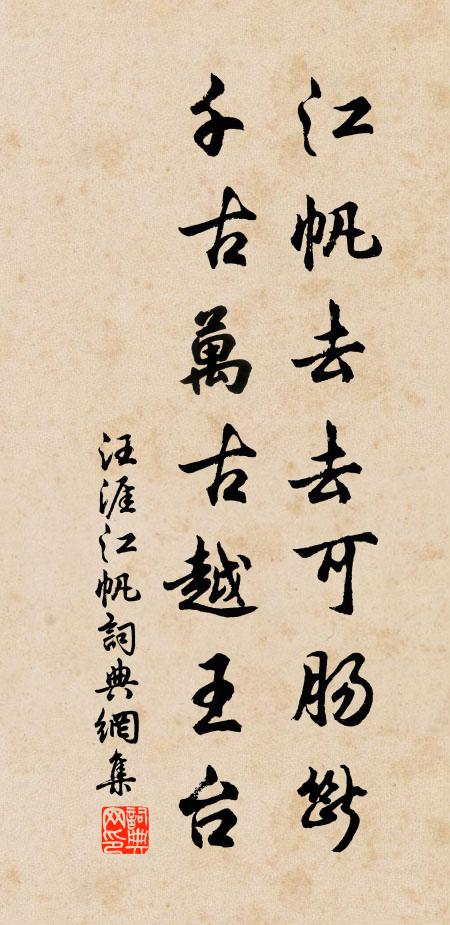 江帆去去可肠断
千古萬古越王台
汪涯江帆詞典網集
詞典網印